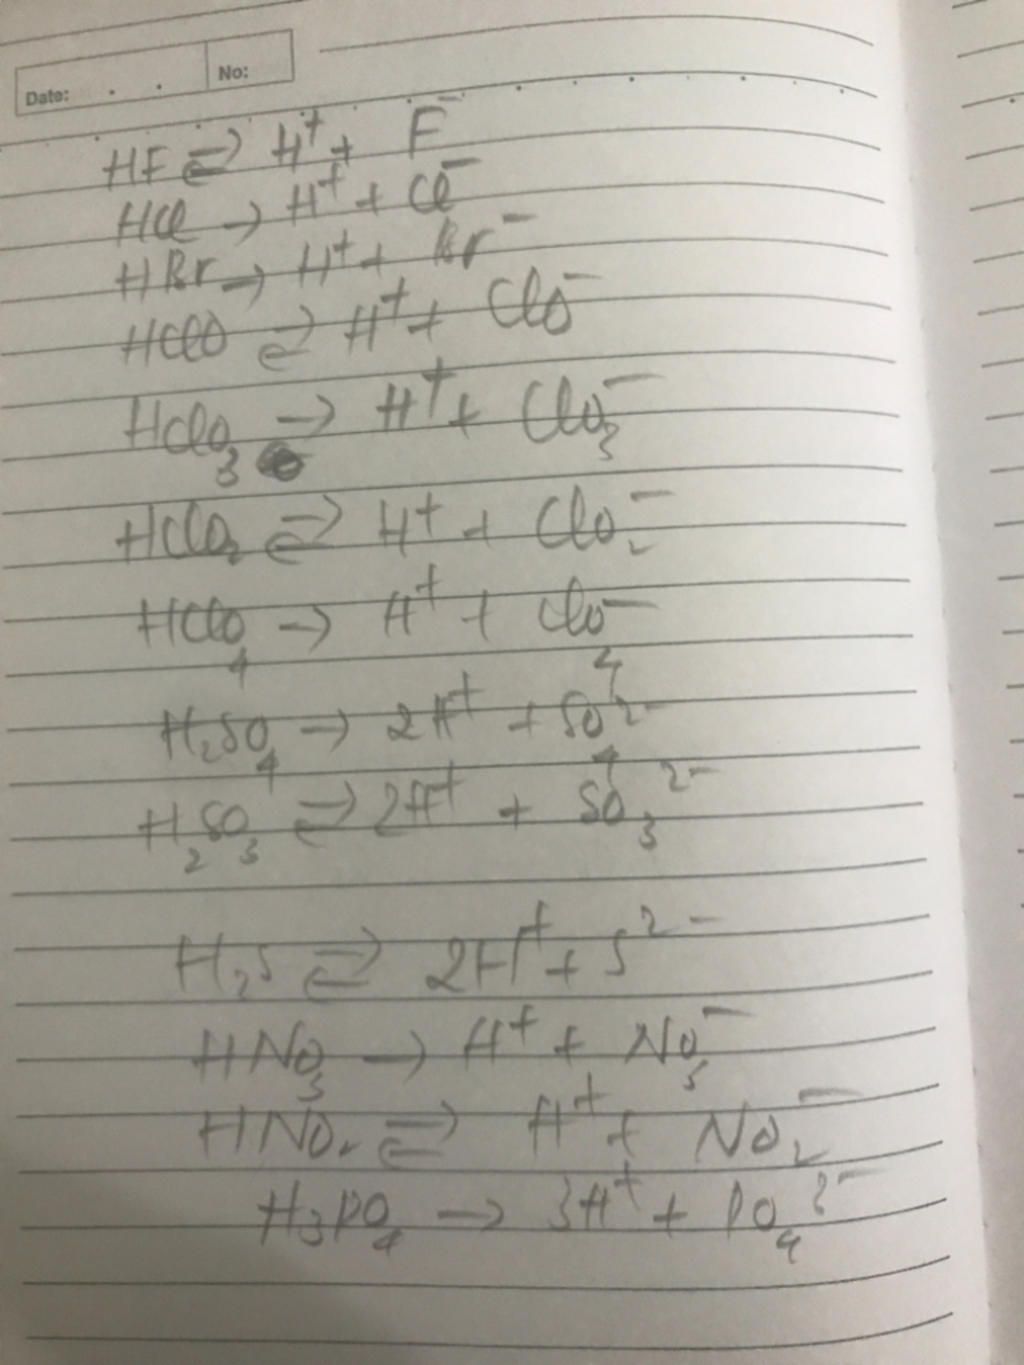 Date: . . No:
HF ⇌ H⁺ + F⁻
HCl → H⁺ + Cl⁻
HBr → H⁺ + Br⁻
HClO ⇌ H⁺ + ClO⁻
HClO₃ → H⁺ + ClO₃⁻
HClO₂ ⇌ H⁺ + ClO₂⁻
HClO₄ → H⁺ + ClO₄⁻
H₂SO₄ → 2H⁺ + SO₄²⁻
H₂SO₃ ⇌ 2H⁺ + SO₃²⁻
H₂S ⇌ 2H⁺ + S²⁻
HNO₃ → H⁺ + NO₃⁻
HNO₂ ⇌ H⁺ + NO₂⁻
H₃PO₄ → 3H⁺ + PO₄³⁻